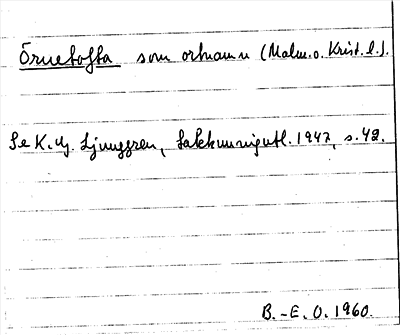 Örnetofta som ortnamn (Malm. o. Krist. l.).
Se K. G. Ljunggren, Sakkunnigutl. 1947, s. 42.
B.-E. O. 1960.